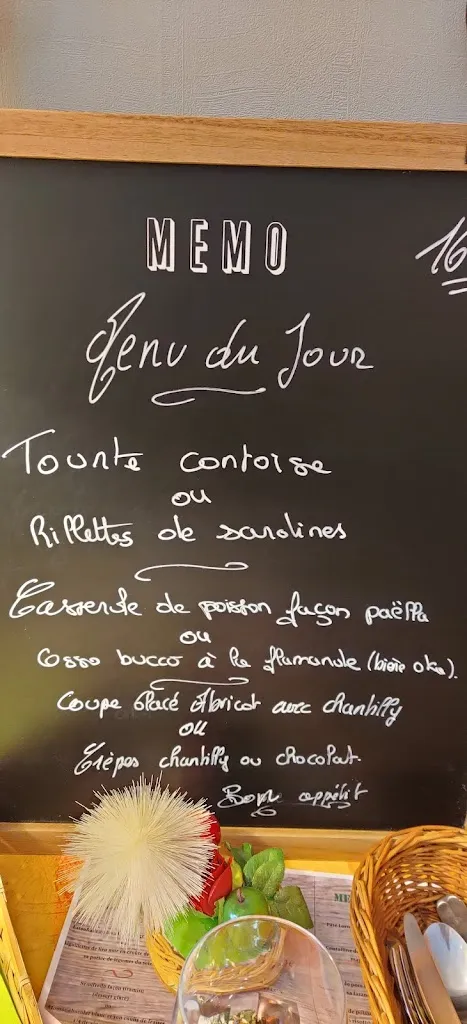 MEMO
16
Menu du Jour
Tourte comtoise
ou
Rillettes de sardines
Casserole de poisson façon paëlla
ou
Osso bucco à la flamande (bière oko).
Coupe glacé Abricot avec chantilly
ou
Crêpes chantilly ou chocolat.
Bon appétit